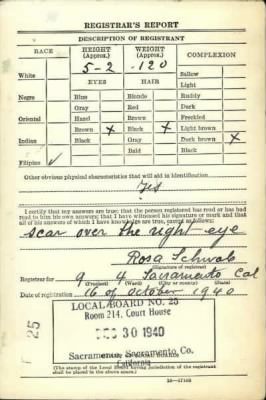 REGISTRAR'S REPORT
DESCRIPTION OF REGISTRANT
RACE HEIGHT (Approx.) WEIGHT (Approx.) COMPLEXION
5-2 -120
White Sallow
EYES HAIR Light
Negro Blue Blonde Ruddy
Gray Red Dark
Oriental Hazel Brown Freckled
Brown X Black X Light brown
Indian Black Gray Dark brown X
Bald Black
Filipino ✓
Other obvious physical characteristics that will aid in identification
Yes
I certify that my answers are true; that the person registered has read or has had
read to him his own answers; that I have witnessed his signature or mark and that
all of his answers of which I have knowledge are true, except as follows:
scar over the right eye
Rosa Schwab
(Signature of registrar)
Registrar for 9 4 Sacramento Cal
(Precinct) (Ward) (City or county) (State)
Date of registration 16 of October 1940
LOCAL BOARD NO. 25
Room 214, Court House
30 1940
Sacramento, Sacramento Co.
California
(The stamp of the Local Board having jurisdiction of the registrant
shall be placed in the above space.)
25